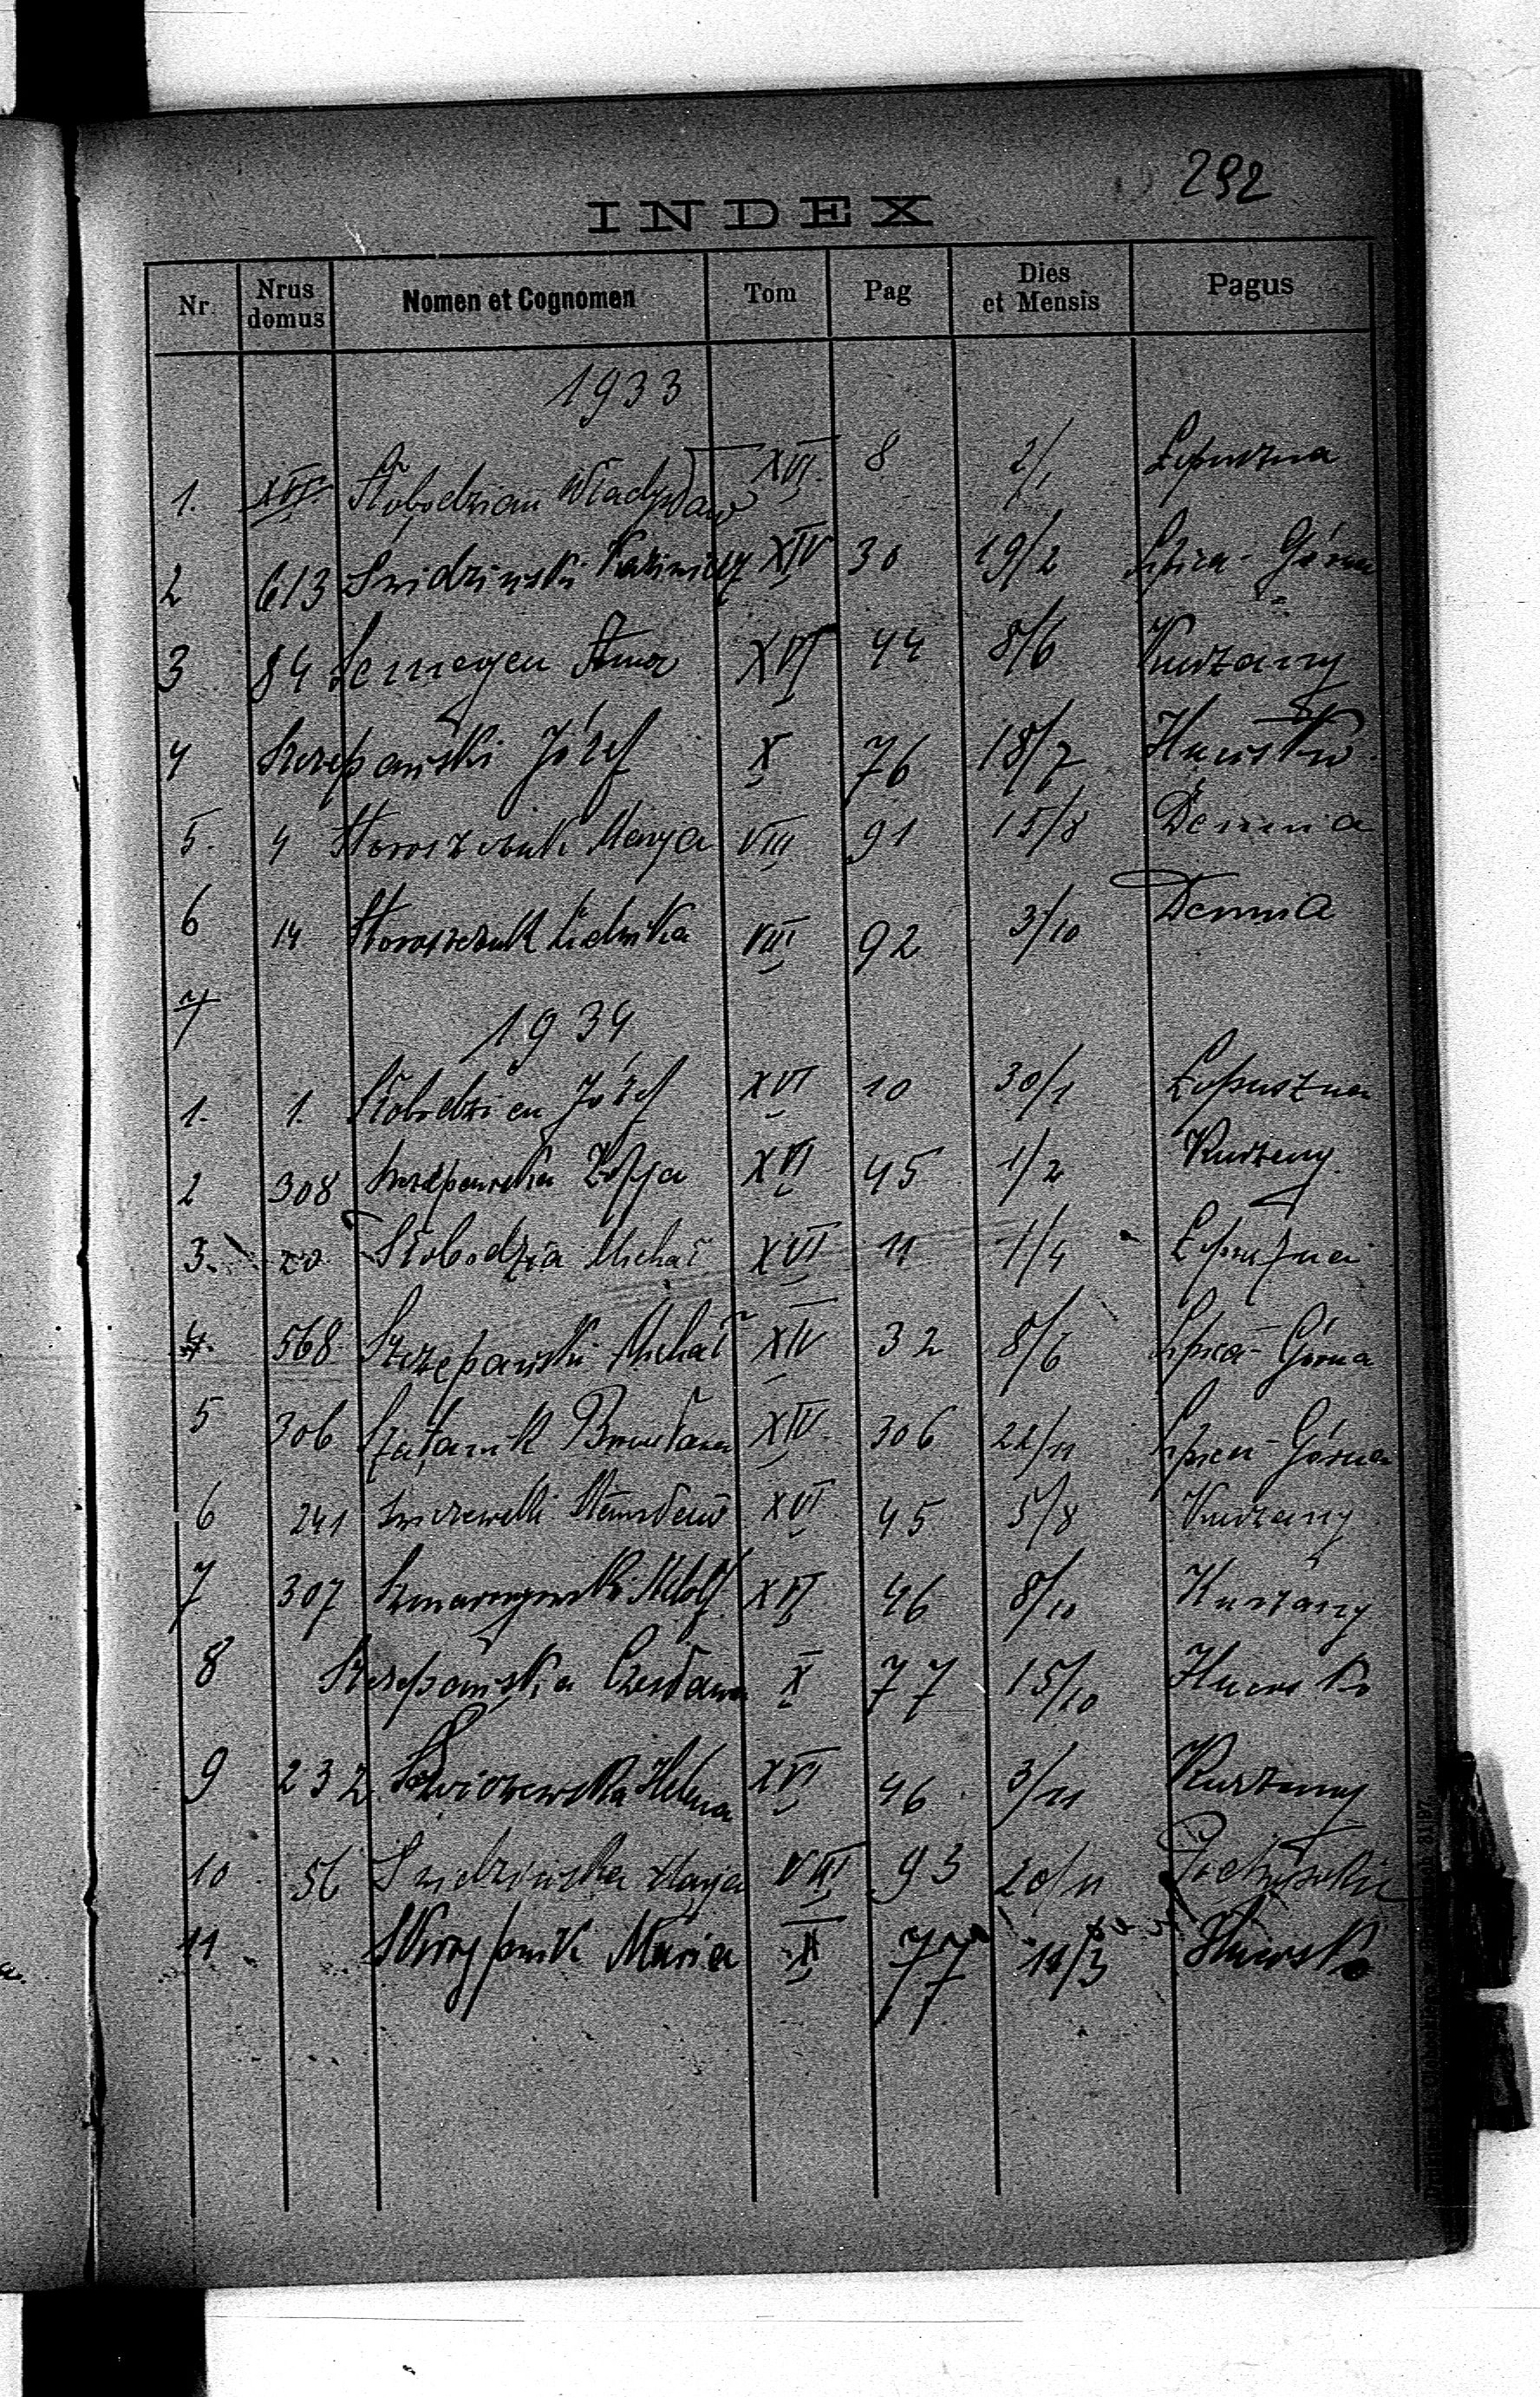 292
INDEX
Nr. Nrus domus Nomen et Cognomen Tom Pag Dies et Mensis Pagus
1933
1. XVI Słobodzian Władysław XVI 8 2/1 Łopuszna
2 613 Swidziński Kazimierz XIV 30 19/2 Lipica-Górna
3 84 XVI 44 8/6 Kurzany
4 Szczepański Józef X 76 18/7 Hucisko
5. 4 Marya VIII 91 15/8 Demnia
6 14 Ludwika VIII 92 3/10 Demnia
7
1934
1. 1. Słobodzian Józef XVI 10 30/1 Łopuszna
2 308 Szczepańska Zofja XVI 45 1/2 Kurzany
3. 20 Słobodzia Michał XVI 11 1/4 Łopuszna
4. 568 Szczepański Michał XIV 32 8/6 Lipica-Górna
5 306 Bronisława XIV 306 22/11 Lipica-Górna
6 241 Stanisław XVI 45 5/8 Kurzany
7 307 Adolf XVI 46 8/10 Kurzany
8 Szczepańska Czesława X 77 15/10 Hucisko
9 232 Helena XVI 46 3/11 Kurzany
10 56 Swidzińska Marja VIII 93 20/11
11 Skrzypnik Maria X 77 11/3 Hucisko